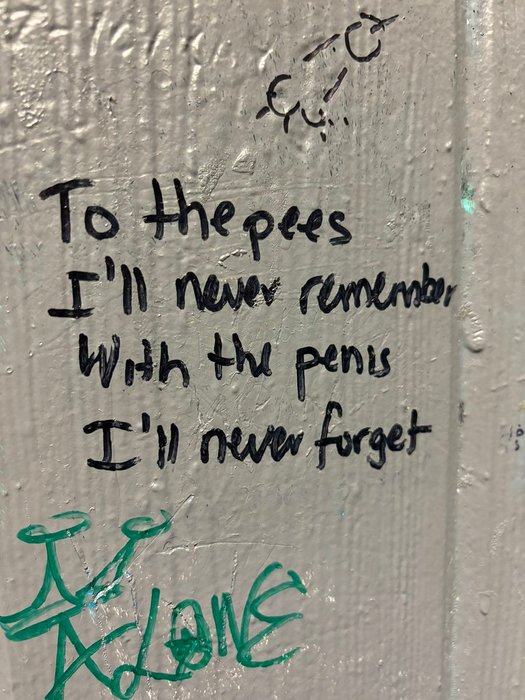 To the pees
I'll never remember
With the penis
I'll never forget
ALONE